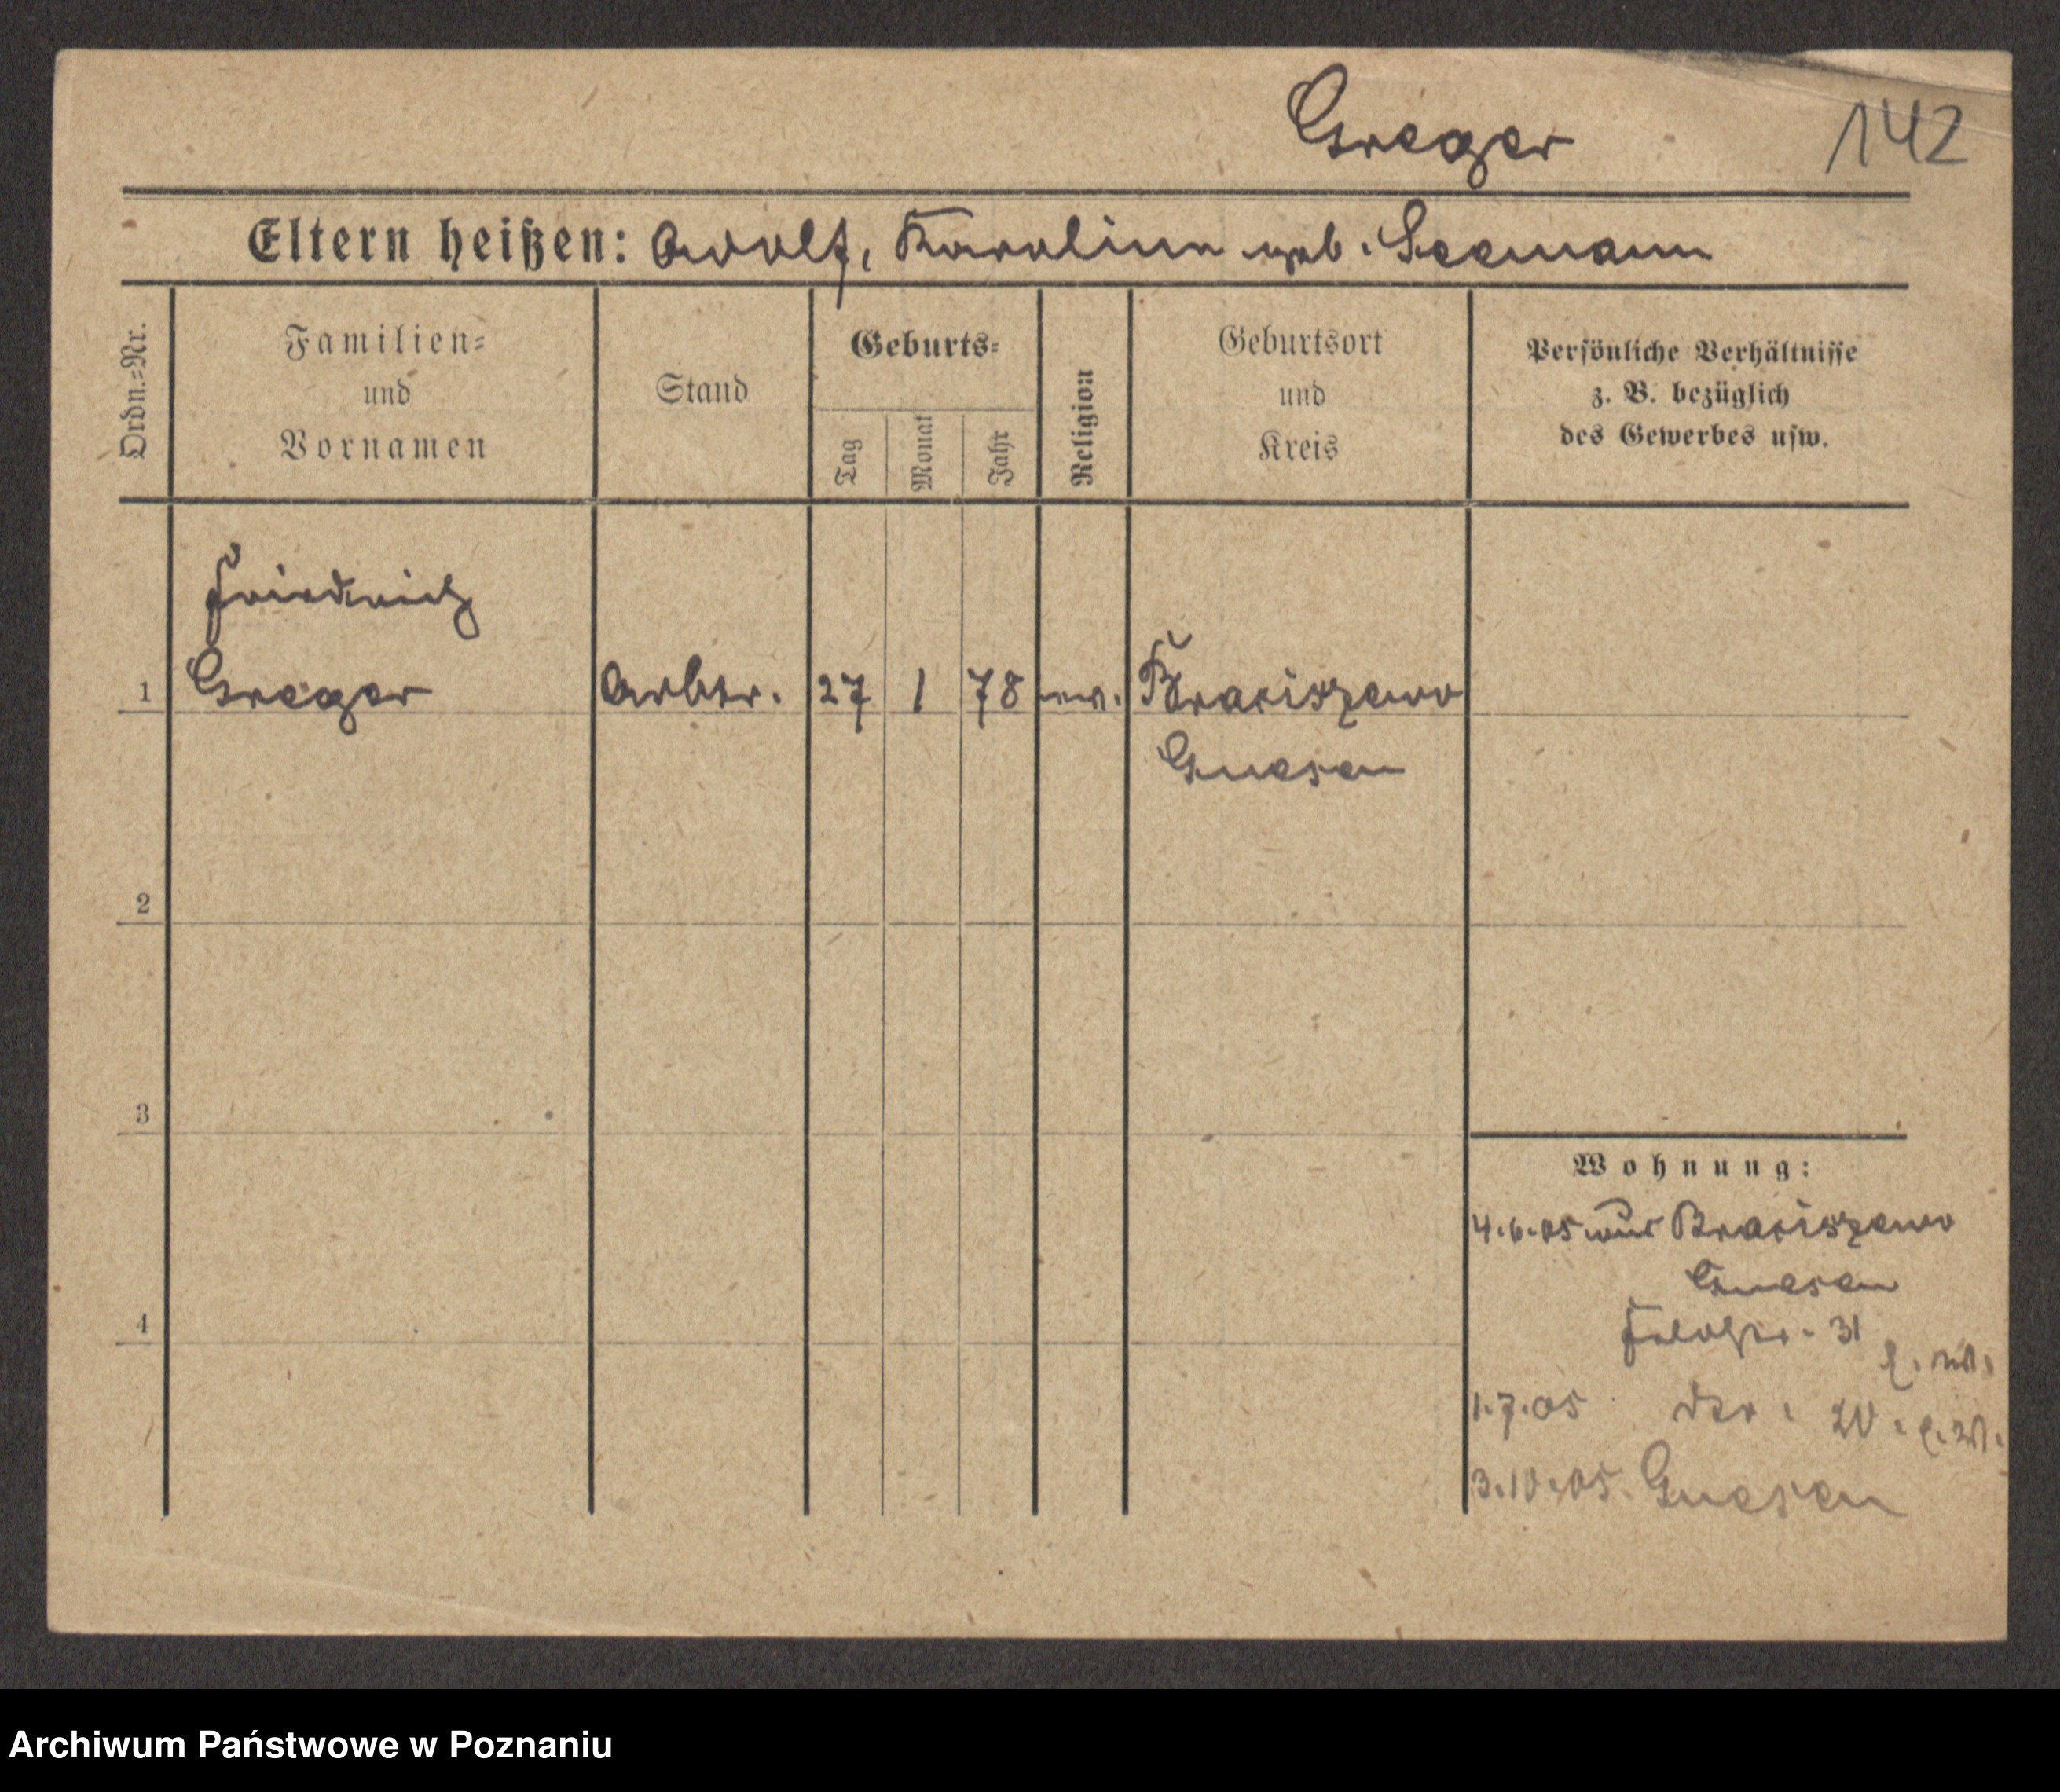 Greger
142
Eltern heißen: Adolf, Karoline geb. Seemann
Ordn.=Nr.
Familien=
und
Vornamen
Stand
Geburts=
Tag
Monat
Jahr
Religion
Geburtsort
und
Kreis
Persönliche Verhältnisse
z. B. bezüglich
des Gewerbes usw.
Friedrich
1 Greger Arbtr. 27 1 78 ev. Braciszewo
Gnesen
2
3
4
Wohnung:
4.6.05 aus Braciszewo
Gnesen
Feldstr. 31
1.7.05 20.
3.10.05. Gnesen
Archiwum Państwowe w Poznaniu